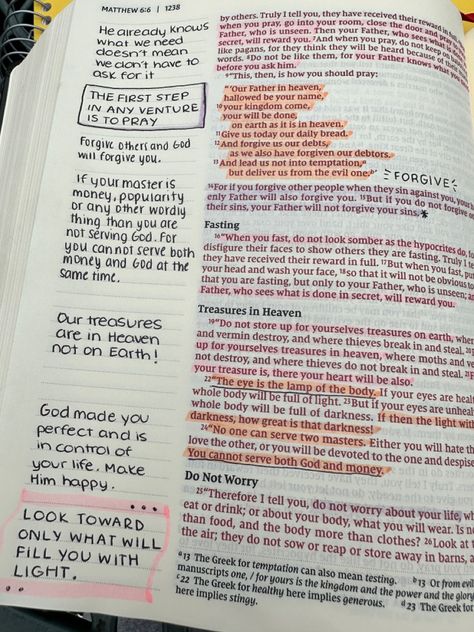 MATTHEW 6:6 | 1238
He already knows
what we need
doesn't mean
we don't have to
ask for it
THE FIRST STEP
IN ANY VENTURE
IS TO PRAY
Forgive others and God
will forgive you.
If your master is
money, popularity
or any other wordly
thing than you are
not serving God. For
you cannot serve both
money and God at the
same time.
Our treasures
are in Heaven
not on Earth!
God made you
perfect and is
in control of
your life. Make
Him happy.
LOOK TOWARD
ONLY WHAT WILL
FILL YOU WITH
LIGHT.
by others. Truly I tell you, they have received their reward in full
when you pray, go into your room, close the door and pray to
Father, who is unseen. Then your Father, who sees what is
secret, will reward you. 7And when you pray, do not keep on
like pagans, for they think they will be heard because of
words. 8Do not be like them, for your Father knows what you
before you ask him.
9"This, then, is how you should pray:
"'Our Father in heaven,
hallowed be your name,
10 your kingdom come,
your will be done,
on earth as it is in heaven.
11 Give us today our daily bread.
12 And forgive us our debts,
as we also have forgiven our debtors.
13 And lead us not into temptation,a
but deliver us from the evil one.b'
FORGIVE
14For if you forgive other people when they sin against you, your
enly Father will also forgive you. 15But if you do not forgive
their sins, your Father will not forgive your sins. *
Fasting
16"When you fast, do not look somber as the hypocrites do,
disfigure their faces to show others they are fasting. Truly I
they have received their reward in full. 17But when you fast, put
your head and wash your face, 18so that it will not be obvious to
that you are fasting, but only to your Father, who is unseen;
Father, who sees what is done in secret, will reward you.
Treasures in Heaven
19"Do not store up for yourselves treasures on earth, where
and vermin destroy, and where thieves break in and steal.
up for yourselves treasures in heaven, where moths and
not destroy, and where thieves do not break in and steal.
your treasure is, there your heart will be also.
22"The eye is the lamp of the body. If your eyes are
whole body will be full of light. 23But if your eyes are
whole body will be full of darkness. If then the light
darkness, how great is that darkness!
24"No one can serve two masters. Either you will hate the
love the other, or you will be devoted to the one and
You cannot serve both God and money.
Do Not Worry
25"Therefore I tell you, do not worry about your life,
eat or drink; or about your body, what you will wear. Is
than food, and the body more than clothes? 26Look at
the air; they do not sow or reap or store away in barns,
a13 The Greek for temptation can also mean testing. b13 Or from evil
manuscripts one, / for yours is the kingdom and the power and the glory
c22 The Greek for healthy here implies generous. d23 The Greek for
here implies stingy.